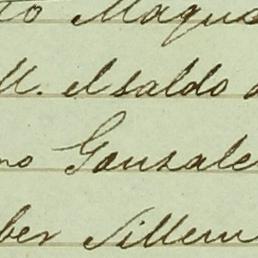 to Maqus
M. el saldo d
no Gonzale
ber Sillem